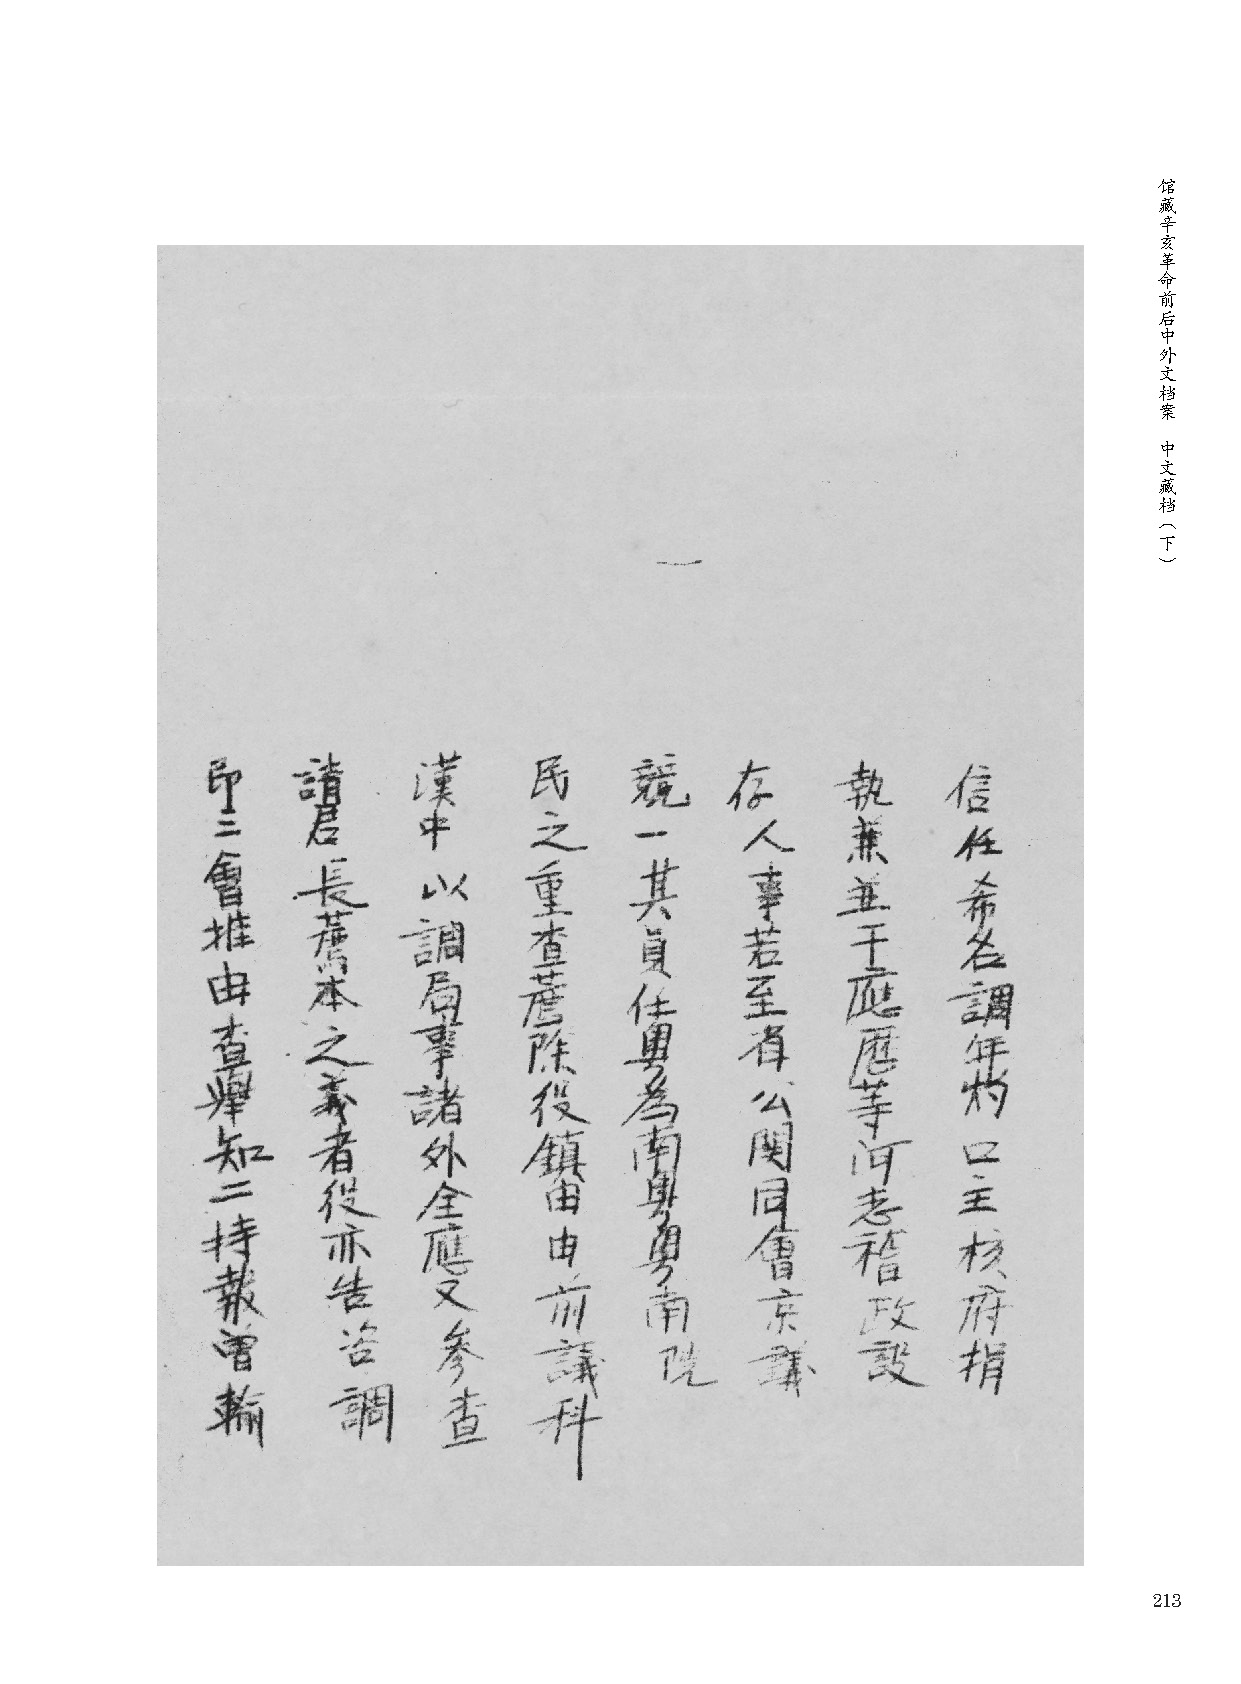 馆藏辛亥革命前后中外文档案 中文藏档（下）
信任希名調年灼口主核府捐
執兼並于應歷等河志稽政設
存人事若至有公関同會京議
競一其貞任粵為南粵粵南院
民之重查薦除役鎮由由前議科
漢中以調局事諸外全應又參查
請君長薦本之義者役亦告咨調
即二會推由查舉知二持報曾輸
213